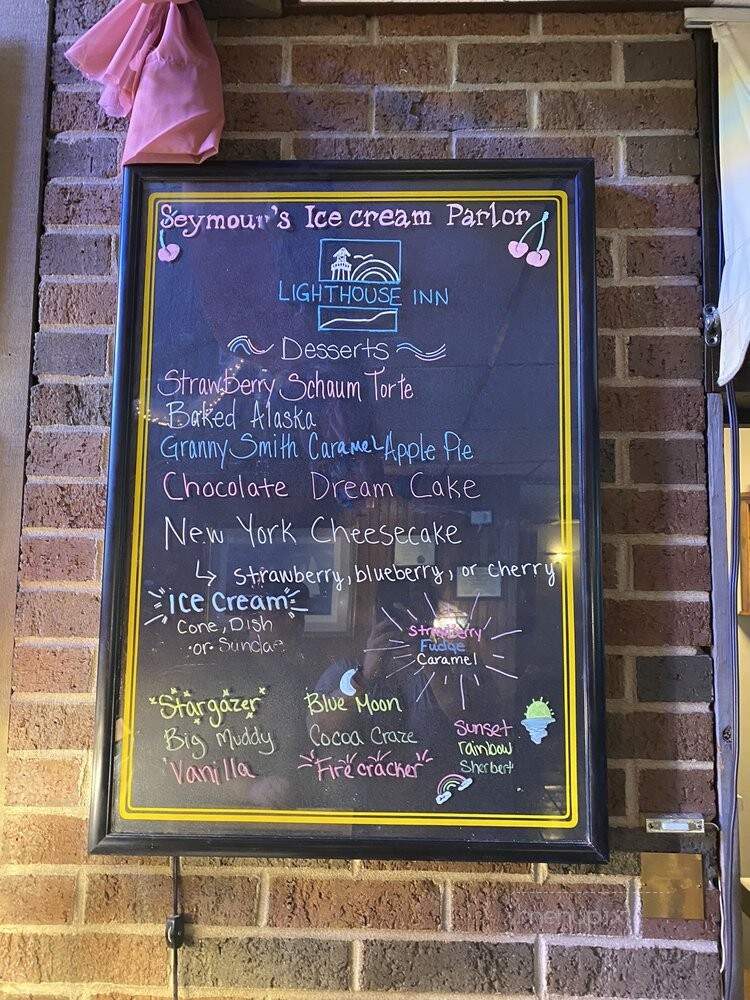 Seymour's Ice cream Parlor
LIGHTHOUSE INN
Desserts
Strawberry Schaum Torte
Baked Alaska
Granny Smith Caramel Apple Pie
Chocolate Dream Cake
New York Cheesecake
↳ strawberry, blueberry, or cherry
ice cream
Cone, Dish
·or· Sundae
Strawberry
Fudge
Caramel
Stargazer
Big Muddy
Vanilla
Blue Moon
Cocoa Craze
Firecracker
Sunset
rainbow
Sherbert
menupix